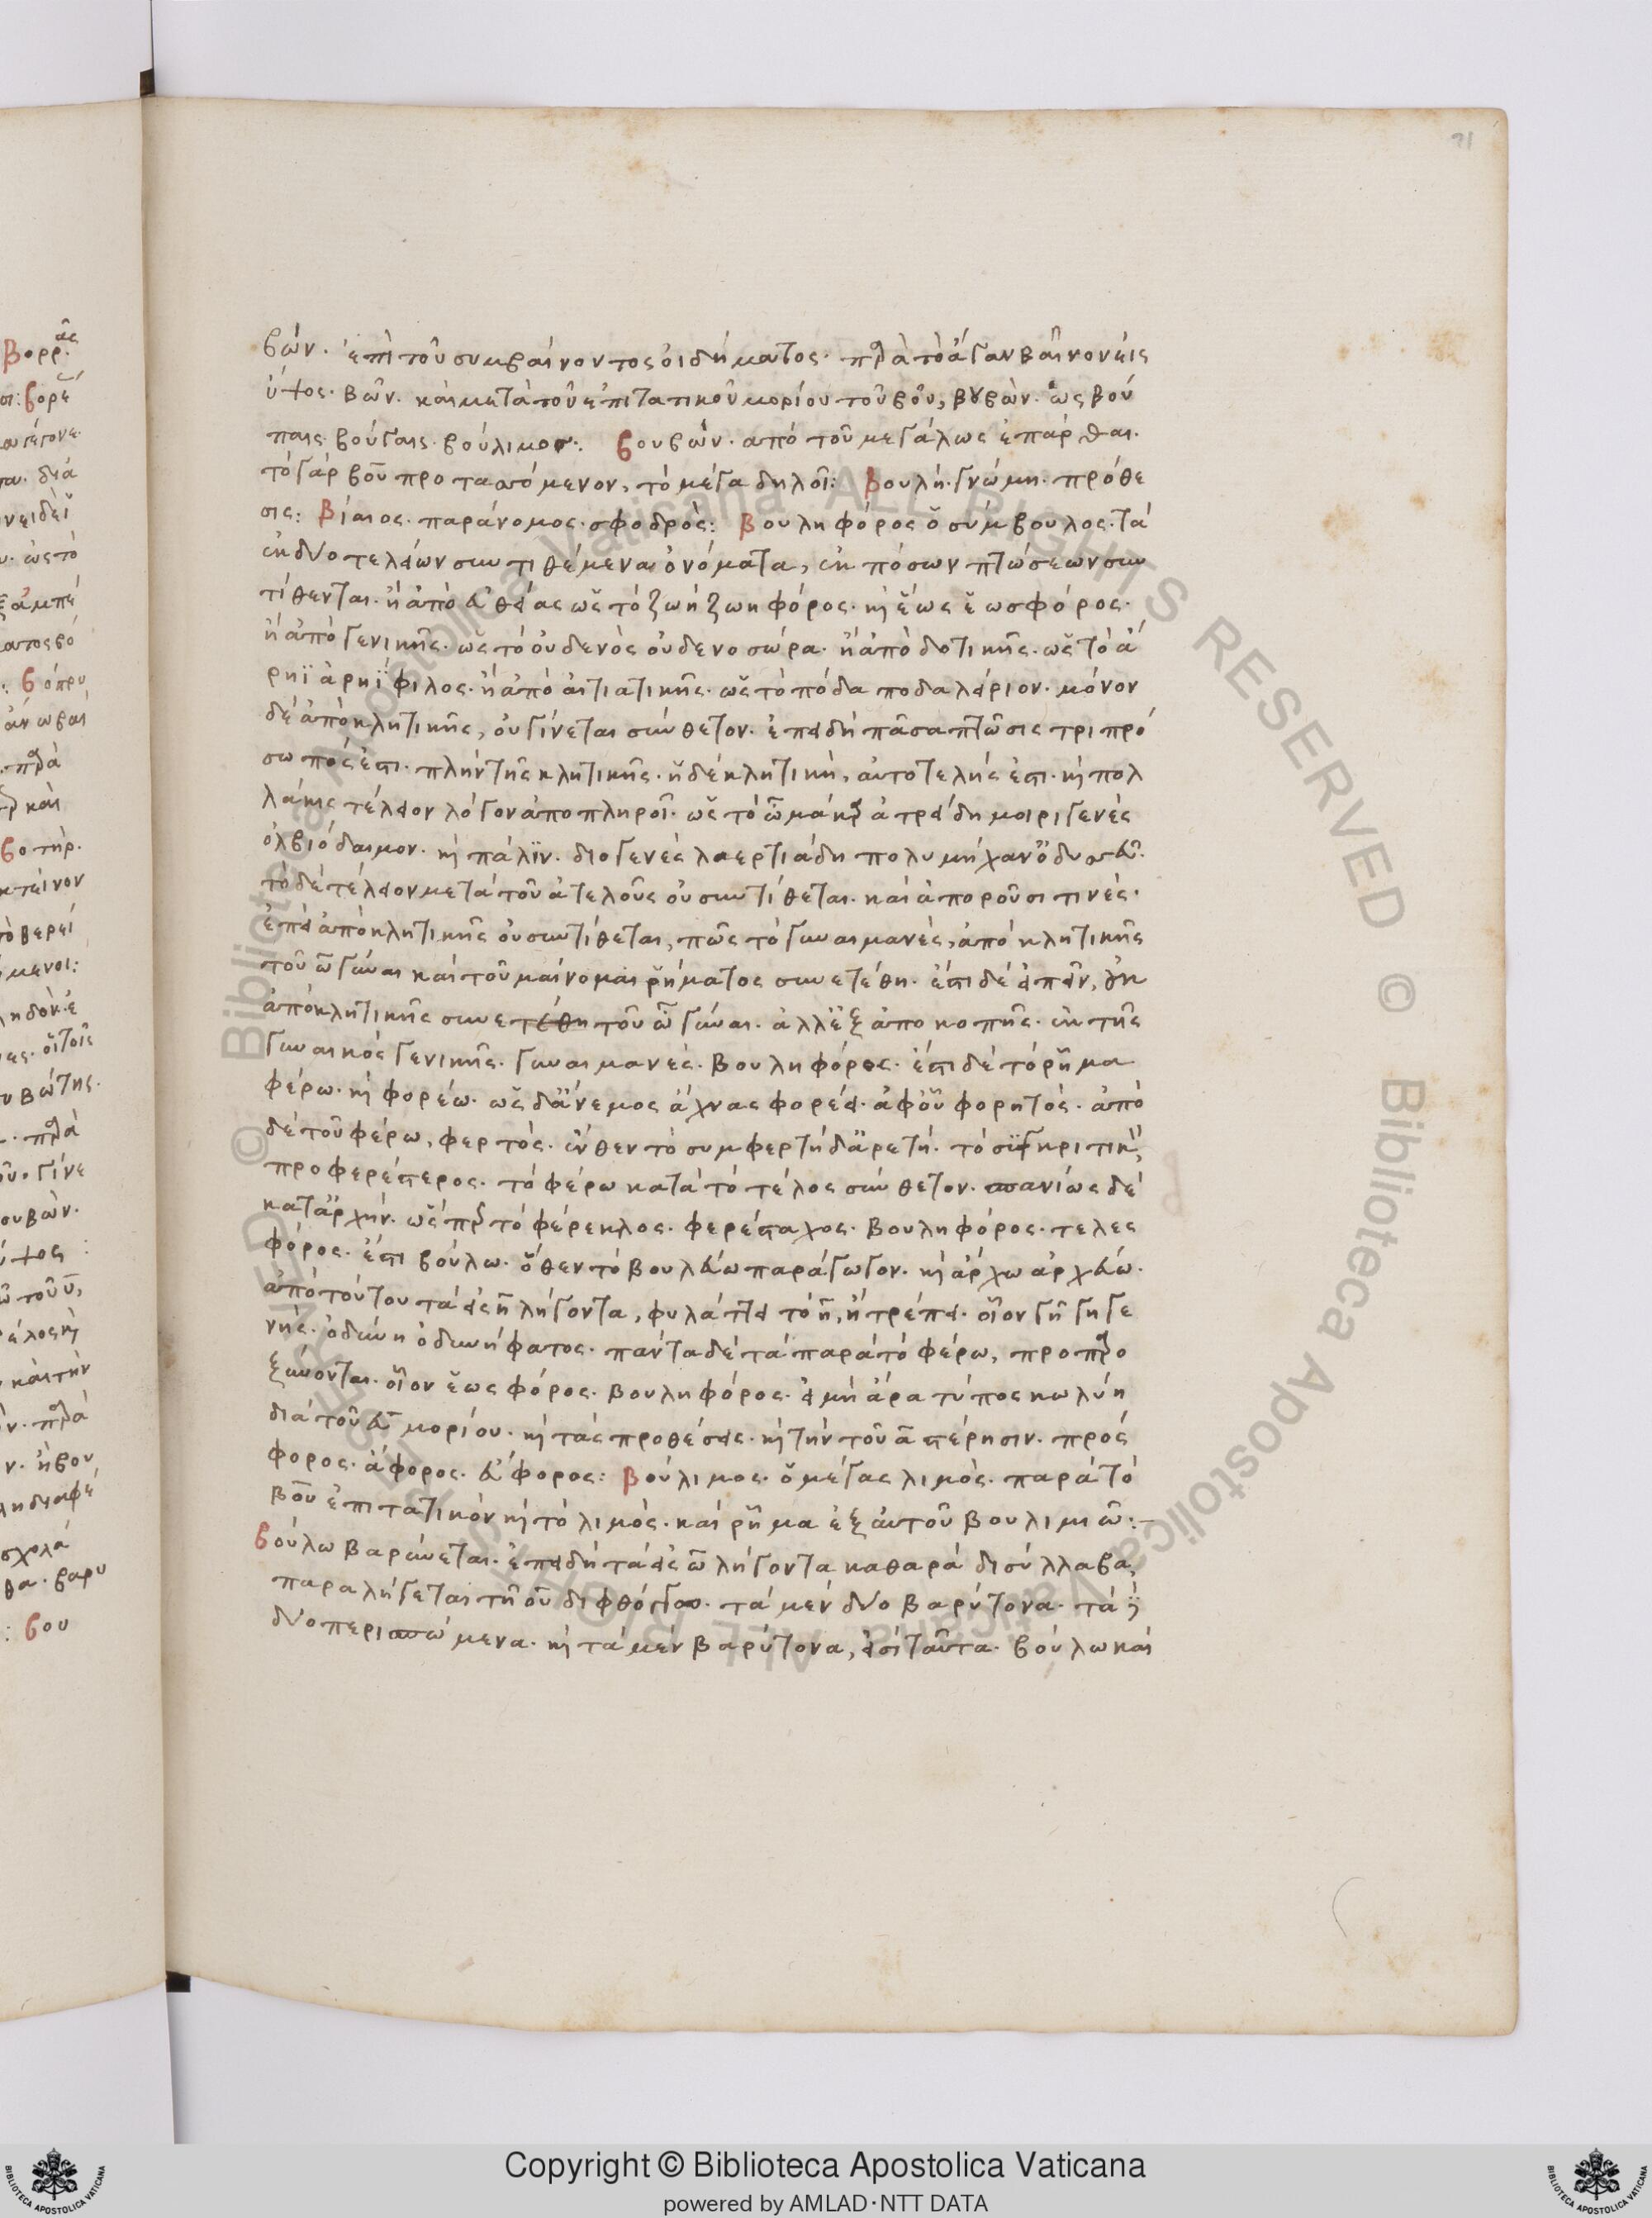 βών. ἐπὶ τοῦ συμβαίνοντος οἰδήματος. παρὰ τὸ ἄγαν βαῖνον εἰς
ὕψος. βῶν. καὶ μετὰ τοῦ ἐπιτατικοῦ μορίου τοῦ βοῦ, βουβὼν. ὡς βού
παις. βούγαις. βούλιμος: βουβών. ἀπὸ τοῦ μεγάλως ἐπάρθαι.
τὸ γὰρ βοῦ προτασσόμενον, τὸ μέγα δηλοῖ: βουλή. γνώμη. πρόθε
σις: βίαιος. παράνομος. σφοδρός: βουληφόρος ὁ σύμβουλος. τὰ
ἐκ δύο τελείων συντιθέμενα ὀνόματα, ἐκ πόσων πτώσεων συν
τίθενται. ἢ ἀπὸ εὐθείας ὡς τὸ ζωή ζωηφόρος. καὶ ἕως ἑωσφόρος.
ἢ ἀπὸ γενικῆς. ὡς τὸ οὐδενὸς οὐδενοσώρα. ἢ ἀπὸ δοτικῆς. ὡς τὸ ἄ
ρηϊ ἀρηΐφιλος. ἢ ἀπὸ αἰτιατικῆς. ὡς τὸ πόδα ποδαλείριον. μόνον
δὲ ἀπὸ κλητικῆς, οὐ γίνεται σύνθετον. ἐπειδὴ πᾶσα πτῶσις τριπρό
σωπός ἐστι. πλὴν τῆς κλητικῆς. ἡ δὲ κλητικὴ, αὐτοτελής ἐστι. καὶ πολ
λάκις τέλειον λόγον ἀποπληροῖ. ὡς τὸ ὦ μάκαρ ἀτρείδη μοιριγενὲς
ὀλβιόδαιμον. καὶ πάλιν. διογενὲς λαερτιάδη πολυμήχαν ὀδυσσεῦ.
τὸ δὲ τέλειον μετὰ τοῦ ἀτελοῦς οὐ συντίθεται. καὶ ἀποροῦσι τινές.
ἐπεὶ ἀπὸ κλητικῆς οὐ συντίθεται, πῶς τὸ γυναιμανές, ἀπὸ κλητικῆς
τοῦ ὦ γύναι καὶ τοῦ μαίνομαι ῥήματος συνετέθη. ἔστι δὲ εἰπεῖν, οὐκ
ἀπὸ κλητικῆς συνετέθη τοῦ ὦ γύναι. ἀλλ' ἐξ ἀποκοπῆς. ἐκ τῆς
γυναικὸς γενικῆς. γυναιμανές. βουληφόρος. ἔστι δὲ τὸ ῥῆμα
φέρω. καὶ φορέω. ὡς δ' ἄνεμος ἄχνας φορέει. ἀφ' οὗ φορητός. ἀπὸ
δὲ τοῦ φέρω, φερτός. ἔνθεν τὸ συμφερτὴ δ' ἀρετή. τὸ συγκριτικὸν,
προφερέστερος. τὸ φέρω κατὰ τὸ τέλος σύνθετον. σπανίως δὲ
κατ' ἀρχήν. ὡς ἐπὶ τὸ φέρεκλος. φερέσταχος. βουληφόρος. τελες
φόρος. ἔστι βούλω. ὅθεν τὸ βουλεύω παράγωγον. καὶ ἄρχω ἀρχεύω.
ἀπὸ τούτου τὰ εἰς η λήγοντα, φυλάττει τὸ η, ἢ τρέπει. οἷον γῆ γηγε
νής. ὀδύνη ὀδυνήφατος. πάντα δὲ τὰ παρὰ τὸ φέρω, προπαρο
ξύνονται. οἷον ἕως φόρος. βουληφόρος. εἰ μὴ ἄρα τύπος κωλύῃ
διὰ τοῦ εὖ μορίου. καὶ τὰς προθέσεις. καὶ τὴν τοῦ α στέρησιν. πρός
φορος. ἄφορος. εὔφορος: βούλιμος. ὁ μέγας λιμός. παρὰ τὸ
βοῦ ἐπιτατικὸν καὶ τὸ λιμός. καὶ ῥῆμα ἐξ αὐτοῦ βουλιμιῶ:-
βούλω βαρύνεται. ἐπειδὴ τὰ εἰς ω λήγοντα καθαρὰ δισύλλαβα,
παραλήγεται τῇ ου διφθόγγω. τὰ μὲν δύο βαρύτονα. τὰ
δύο περισπώμενα. καὶ τὰ μὲν βαρύτονα, εἰσὶ ταῦτα. βούλω καὶ